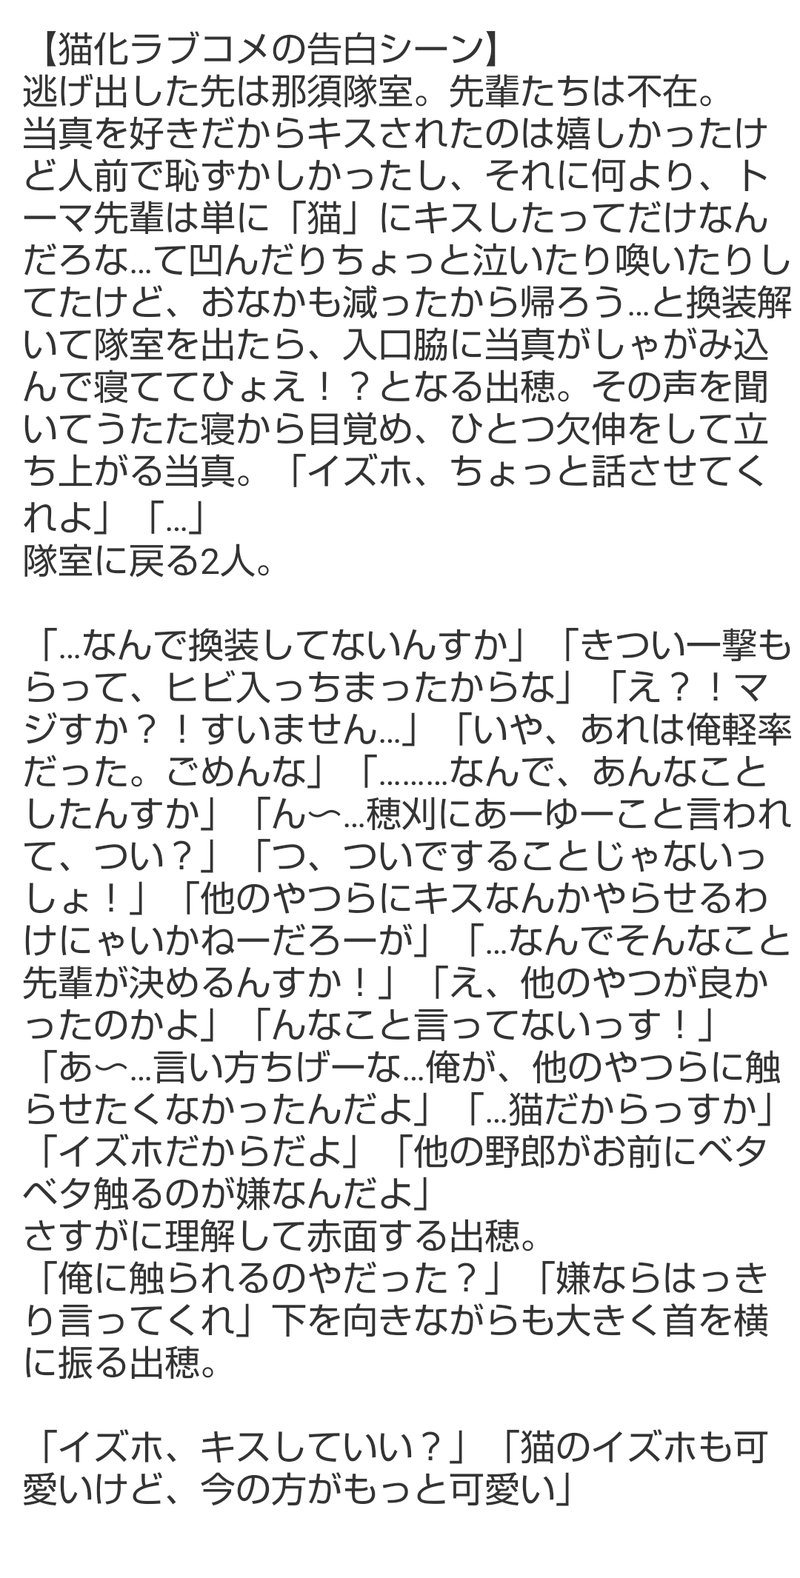 【猫化ラブコメの告白シーン】
逃げ出した先は那須隊室。先輩たちは不在。
当真を好きだからキスされたのは嬉しかったけ
ど人前で恥ずかしかったし、それに何より、ト
ーマ先輩は単に「猫」にキスしたってだけなん
だろな…て凹んだりちょっと泣いたり喚いたりし
てたけど、おなかも減ったから帰ろう…と換装解
いて隊室を出たら、入口脇に当真がしゃがみ込
んで寝ててひょえ！？となる出穂。その声を聞
いてうたた寝から目覚め、ひとつ欠伸をして立
ち上がる当真。「イズホ、ちょっと話させてく
れよ」「…」
隊室に戻る2人。

「…なんで換装してないんすか」「きつい一撃も
らって、ヒビ入っちまったからな」「え？！マ
ジすか？！すいません…」「いや、あれは俺軽率
だった。ごめんな」「………なんで、あんなこと
したんすか」「ん〜…穂刈にあーゆーこと言われ
て、つい？」「つ、ついですることじゃないっ
しょ！」「他のやつらにキスなんかやらせるわ
けにゃいかねーだろーが」「…なんでそんなこと
先輩が決めるんすか！」「え、他のやつが良か
ったのかよ」「んなこと言ってないっす！」
「あ〜…言い方ちげーな…俺が、他のやつらに触
らせたくなかったんだよ」「…猫だからっすか」
「イズホだからだよ」「他の野郎がお前にベタ
ベタ触るのが嫌なんだよ」
さすがに理解して赤面する出穂。
「俺に触られるのやだった？」「嫌ならはっき
り言ってくれ」下を向きながらも大きく首を横
に振る出穂。

「イズホ、キスしていい？」「猫のイズホも可
愛いけど、今の方がもっと可愛い」